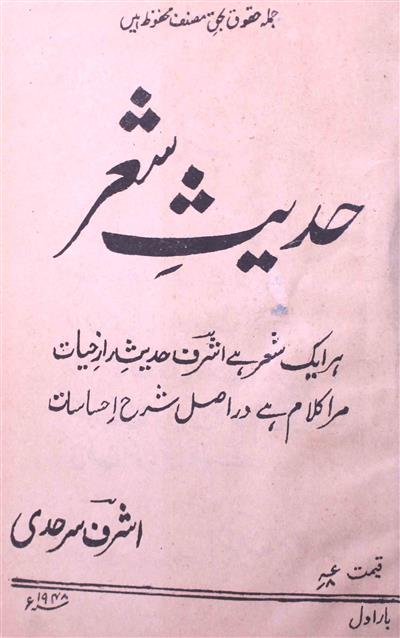 جملہ حقوق بحق مصنف محفوظ ہیں
حدیثِ شعر
ہر ایک شعر ہے اشرف حدیثِ رازِ حیات
مرا کلام ہے دراصل شرحِ احساسات
اشرف سرحدی
قیمت
۱۹۴۸ء
بار اول